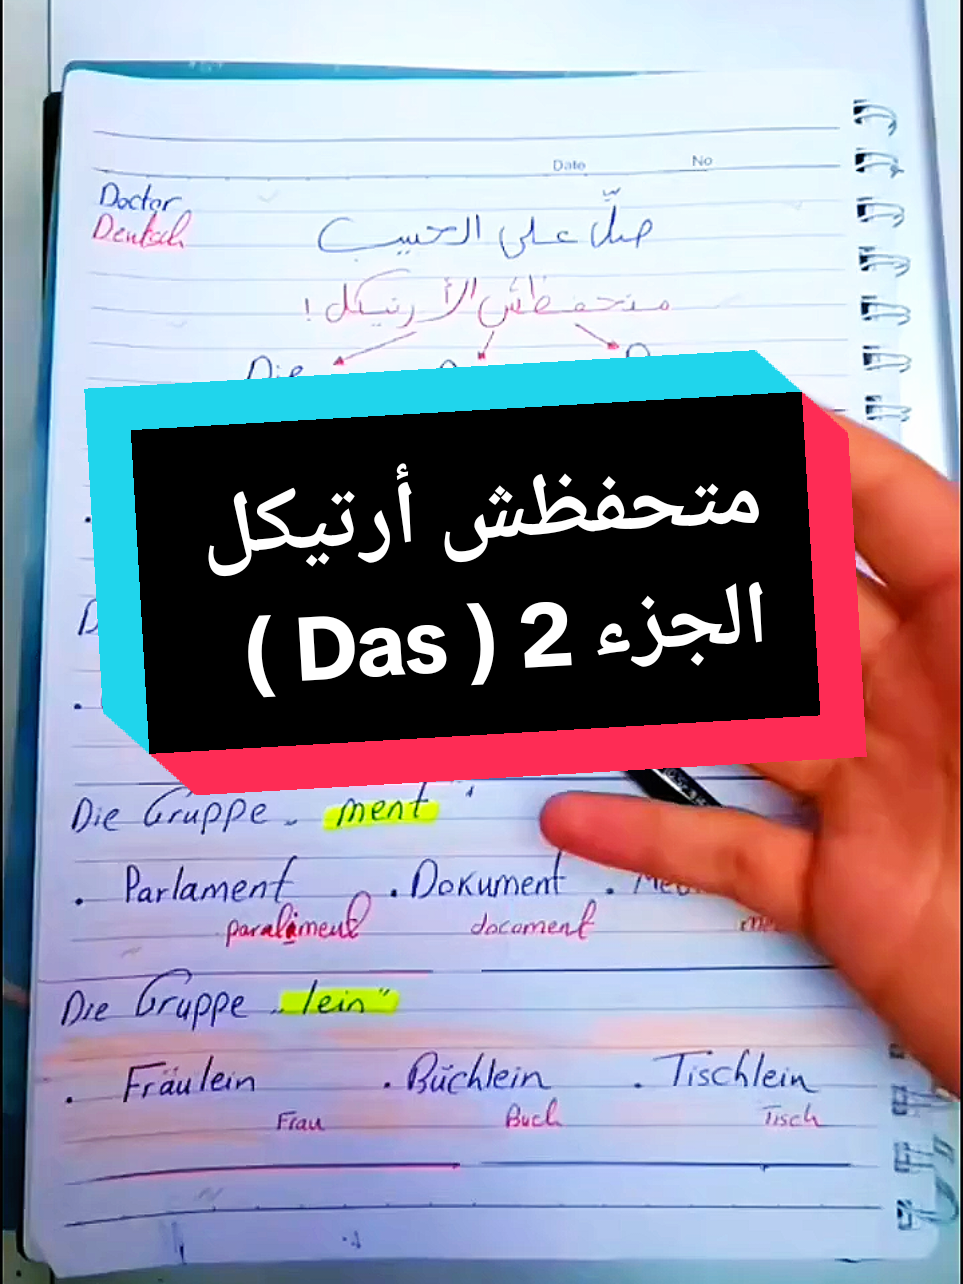 Date No
Doctor
Deutsch
صلِّ على الحبيب
متحفظش الأرتيكل !
Die
متحفظش أرتيكل
الجزء 2 ( Das )
Die Gruppe „ ment "
. Parlament . Dokument .
paralament document
Die Gruppe „ lein "
. Fräulein . Büchlein . Tischlein
Frau Buch Tisch